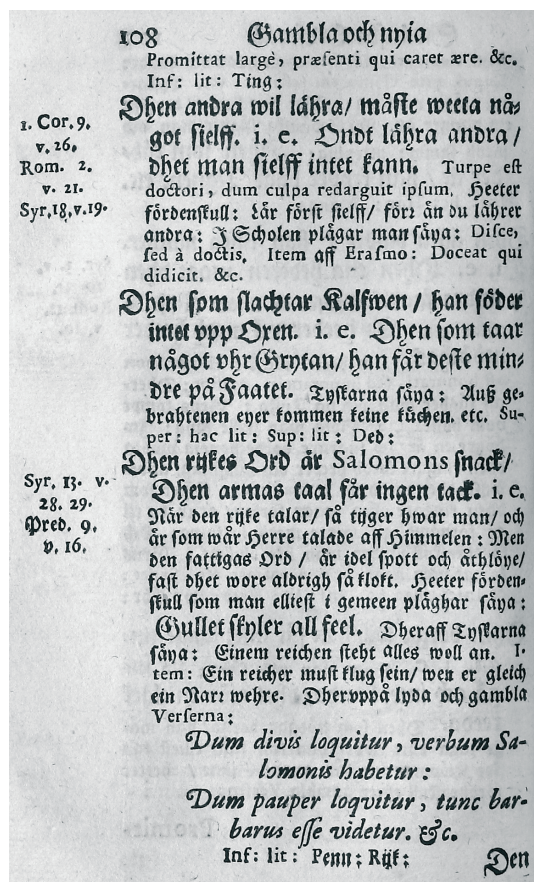 108 Gambla och nyia
Promittat largè, præsenti qui caret ære. &c.
Inf: lit: Ting:
Dhen andra wil lähra/ måste weeta nå-
got sielff. i. e. Ondt lähra andra/
dhet man sielff intet kann. Turpe est
doctori, dum culpa redarguit ipsum. Heeter
fördenskull: Lär först sielff/ förr än du lährer
andra: J Scholen plägar man säya: Disce,
sed à doctis. Item aff Erasmo: Doceat qui
didicit. &c.
1. Cor. 9.
v. 26.
Rom. 2.
v. 21.
Syr. 18. v. 19.
Dhen som slachtar Kalfwen/ han föder
intet vpp Oxen. i. e. Dhen som taar
något vhr Grytan/ han får deste min-
dre på Faatet. Tyskarna säya: Auß ge-
brahtenen eyer kommen keine küchen. etc. Su-
per: hac lit: Sup: lit: Ded:
Dhen rijkes Ord är Salomons snack/
Dhen armas taal får ingen tack. i. e.
När den rijke talar/ så tijger hwar man/ och
är som wår Herre talade aff Himmelen: Men
den fattigas Ord/ är idel spott och åthlöye/
fast dhet wore aldrigh så klokt. Heeter förden-
skull som man elliest i gemeen pläghar säya:
Gullet skyler all feel. Dheraff Tyskarna
säya: Einem reichen steht alles woll an. I-
tem: Ein reicher must klug sein/ wen er gleich
ein Narr wehre. Dheruppå lyda och gambla
Verserna:
Syr. 13. v.
28. 29.
Pred. 9.
v. 16.
Dum divis loquitur, verbum Sa-
lomonis habetur:
Dum pauper loqvitur, tunc bar-
barus esse videtur. &c.
Inf: lit: Penn: Rijk:
Den